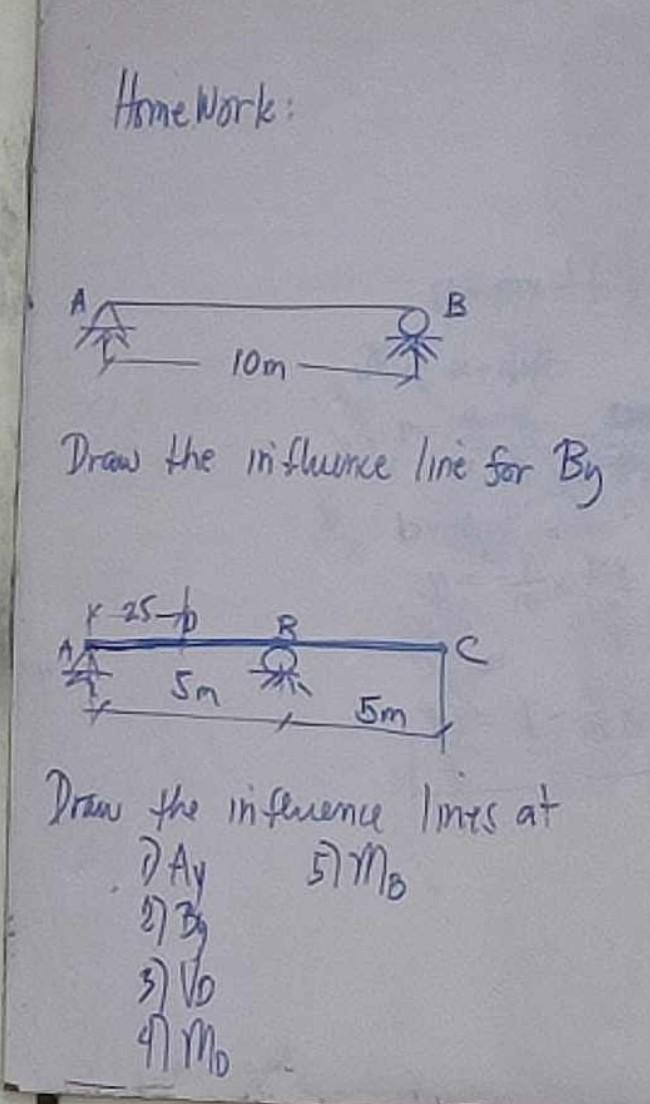 Home Work:
A B
10m
Draw the influence line for By
25 D
A B C
5m 5m
Draw the infeuence lines at
1) Ay 5) MB
2) By
3) VD
4) MD